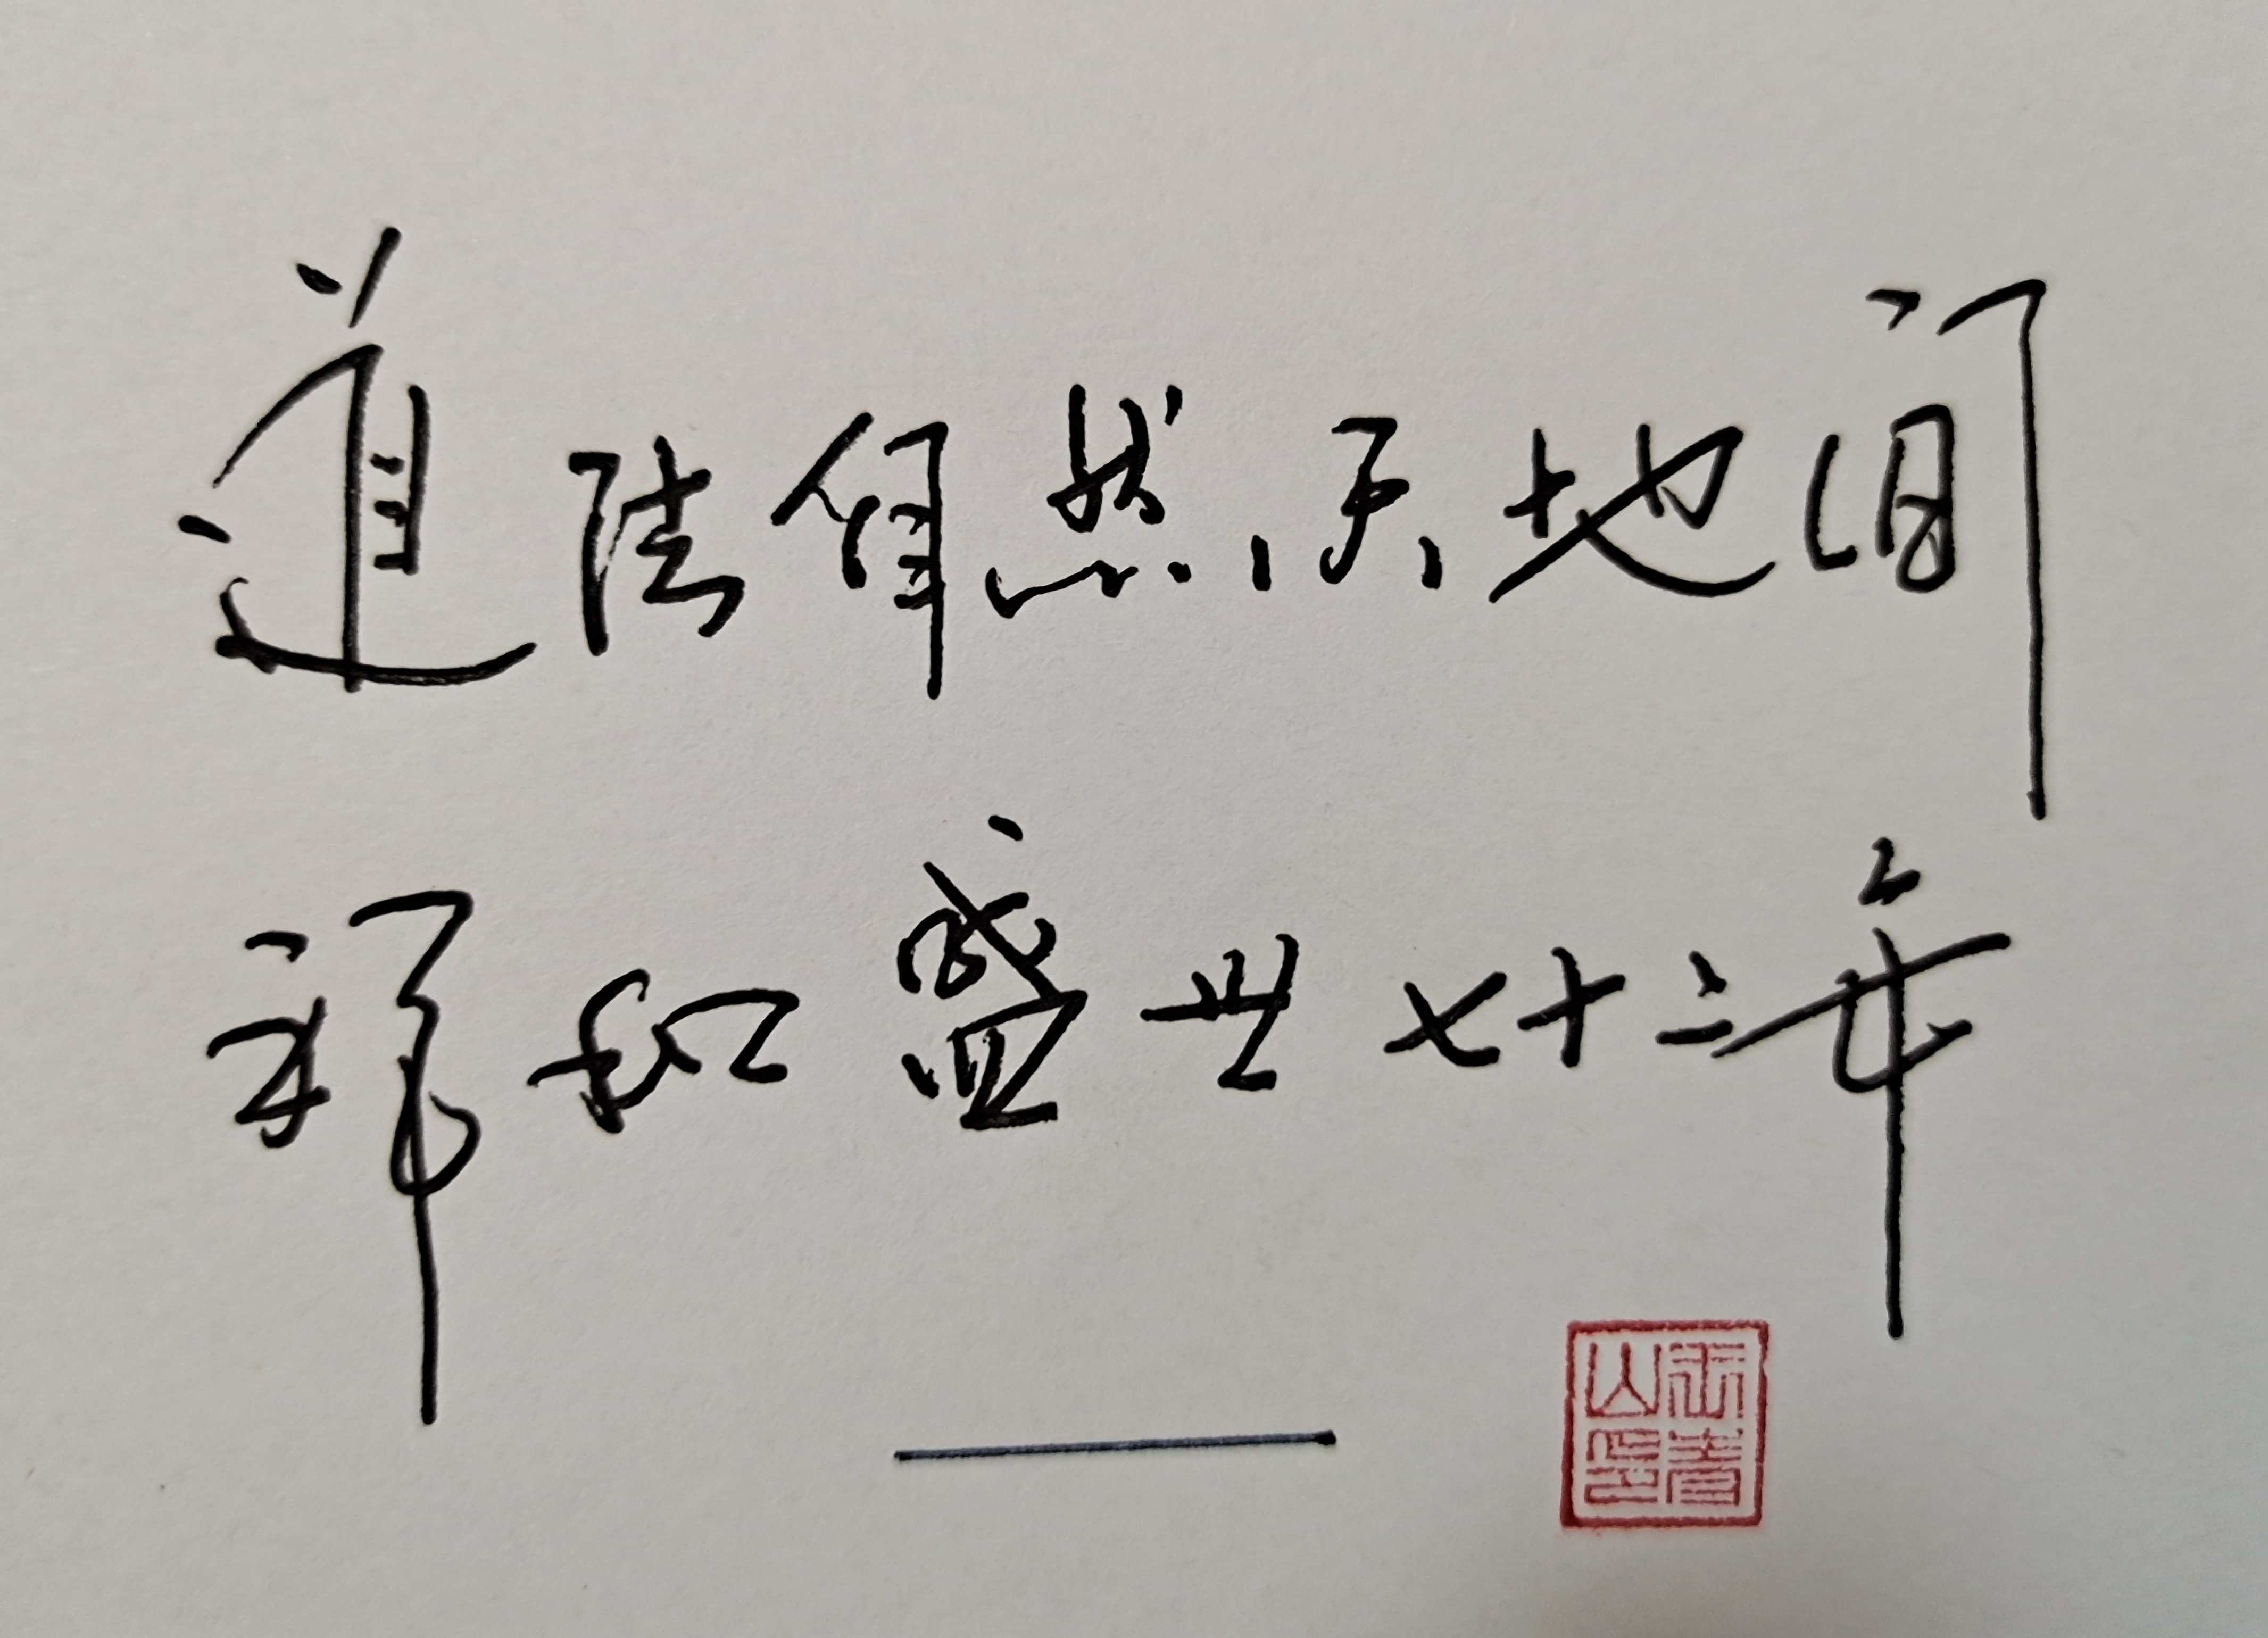 道法自然天地间
祥和盛世七十二年